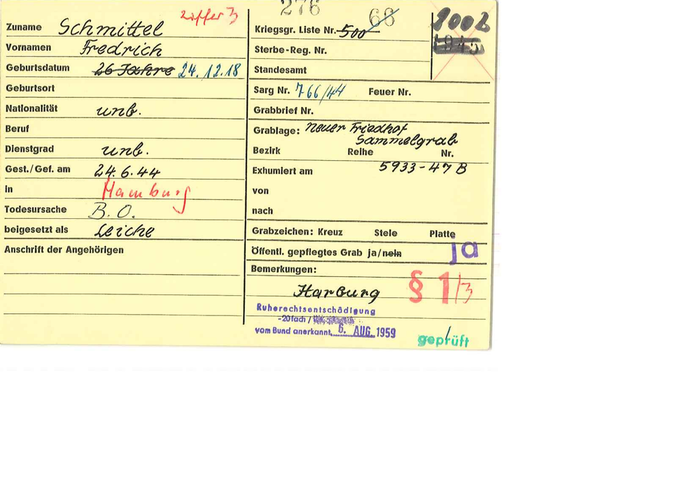 Ziffer 3
276
68
Zuname Schmittel
Kriegsgr. Liste Nr. 500
Vornamen Fredrich
Sterbe-Reg. Nr.
Geburtsdatum 26 Jahre 24.12.18
Standesamt
Geburtsort
Sarg Nr. 766/44 Feuer Nr.
Nationalität unb.
Grabbrief Nr.
Beruf
Grablage: neuer Friedhof
Sammelgrab
Dienstgrad unb.
Bezirk Reihe Nr.
5933-47 B
Gest./Gef. am 24.6.44
Exhumiert am
in Hamburg
von
Todesursache B.O.
nach
beigesetzt als Leiche
Grabzeichen: Kreuz Stele Platte
Anschrift der Angehörigen
Öffentl. gepflegtes Grab ja/nein ja
Bemerkungen:
Harburg § 1/3
Ruherechtsentschädigung
-20fach/
vom Bund anerkannt 6. AUG. 1959
geprüft